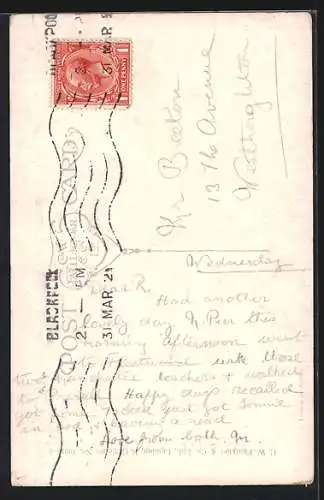 BLACKPOOL
2 - PM
31 MAR 21
BLACKPOOL
31 MAR
ONE PENNY
POST CARD
Mr Beeton
13 The Avenue
Westhoughton
Wednesday
Dear R.
Had another
lovely day N. Pier this
morning afternoon went
to Fleetwood with those
two Manchester teachers & walked
to
Happy days recalled
got home 7 oclock just got Tommie
in bed & having a read
Love from both. M.